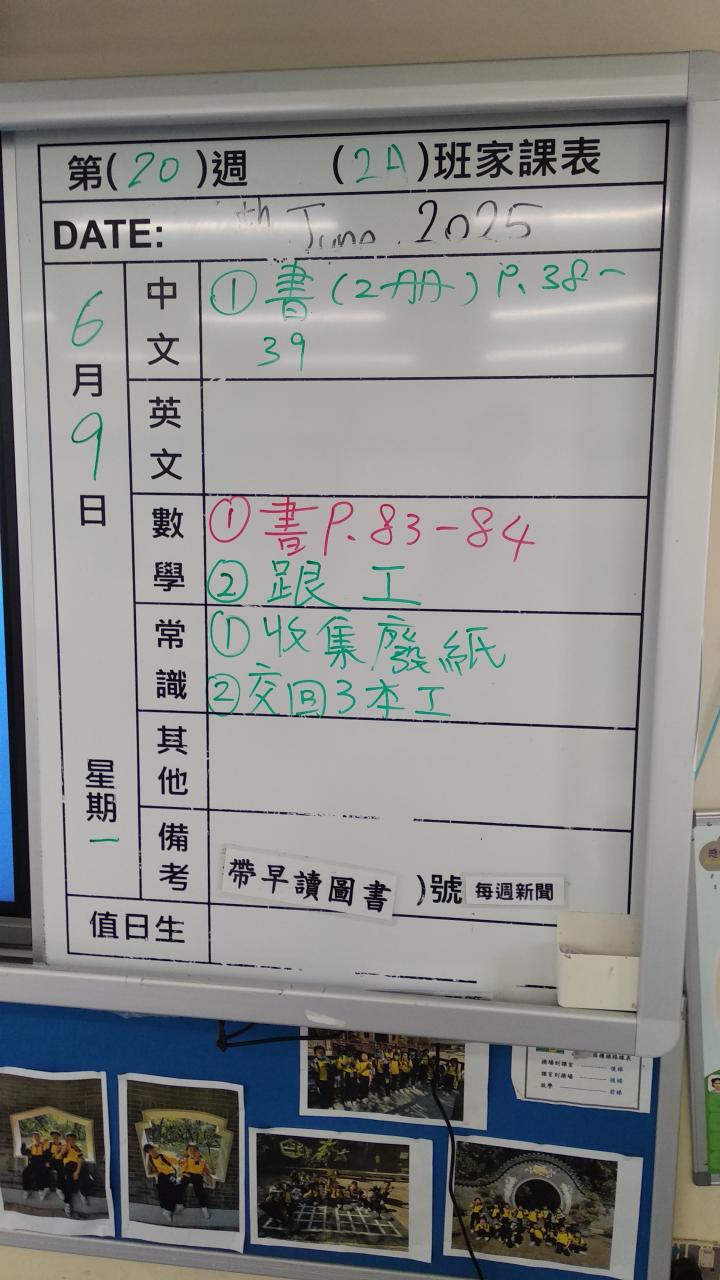 第(20)週 (2A)班家課表
DATE: th June 2025
6月9日
星期一
中文
①書(2冊)P.38~
39
英文
數學
①書P.83-84
②跟工
常識
①收集廢紙
②交回3本工
其他
備考
帶早讀圖書 )號 每週新聞
值日生